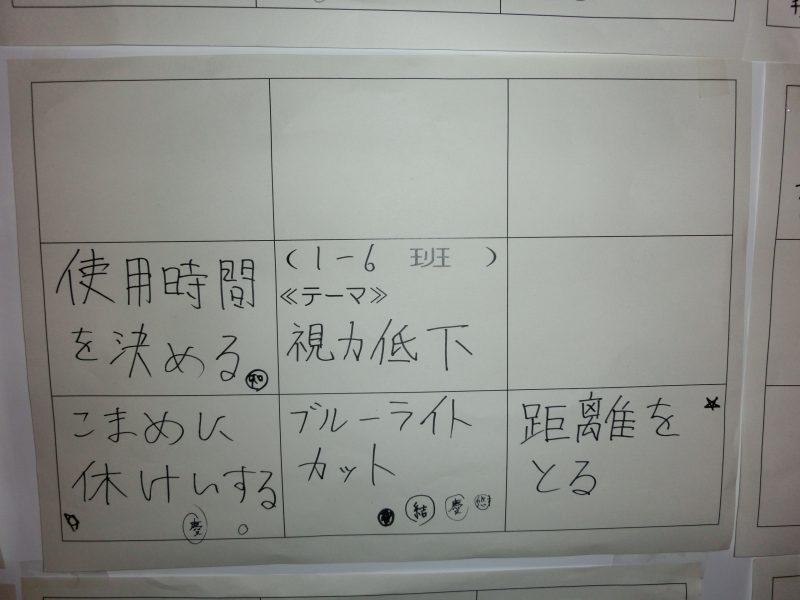 使用時間
を決める
知
(1-6 班 )
≪テーマ≫
視力低下
こまめに
休けいする
慶
ブルーライト
カット
結
慶
悠
距離を
とる